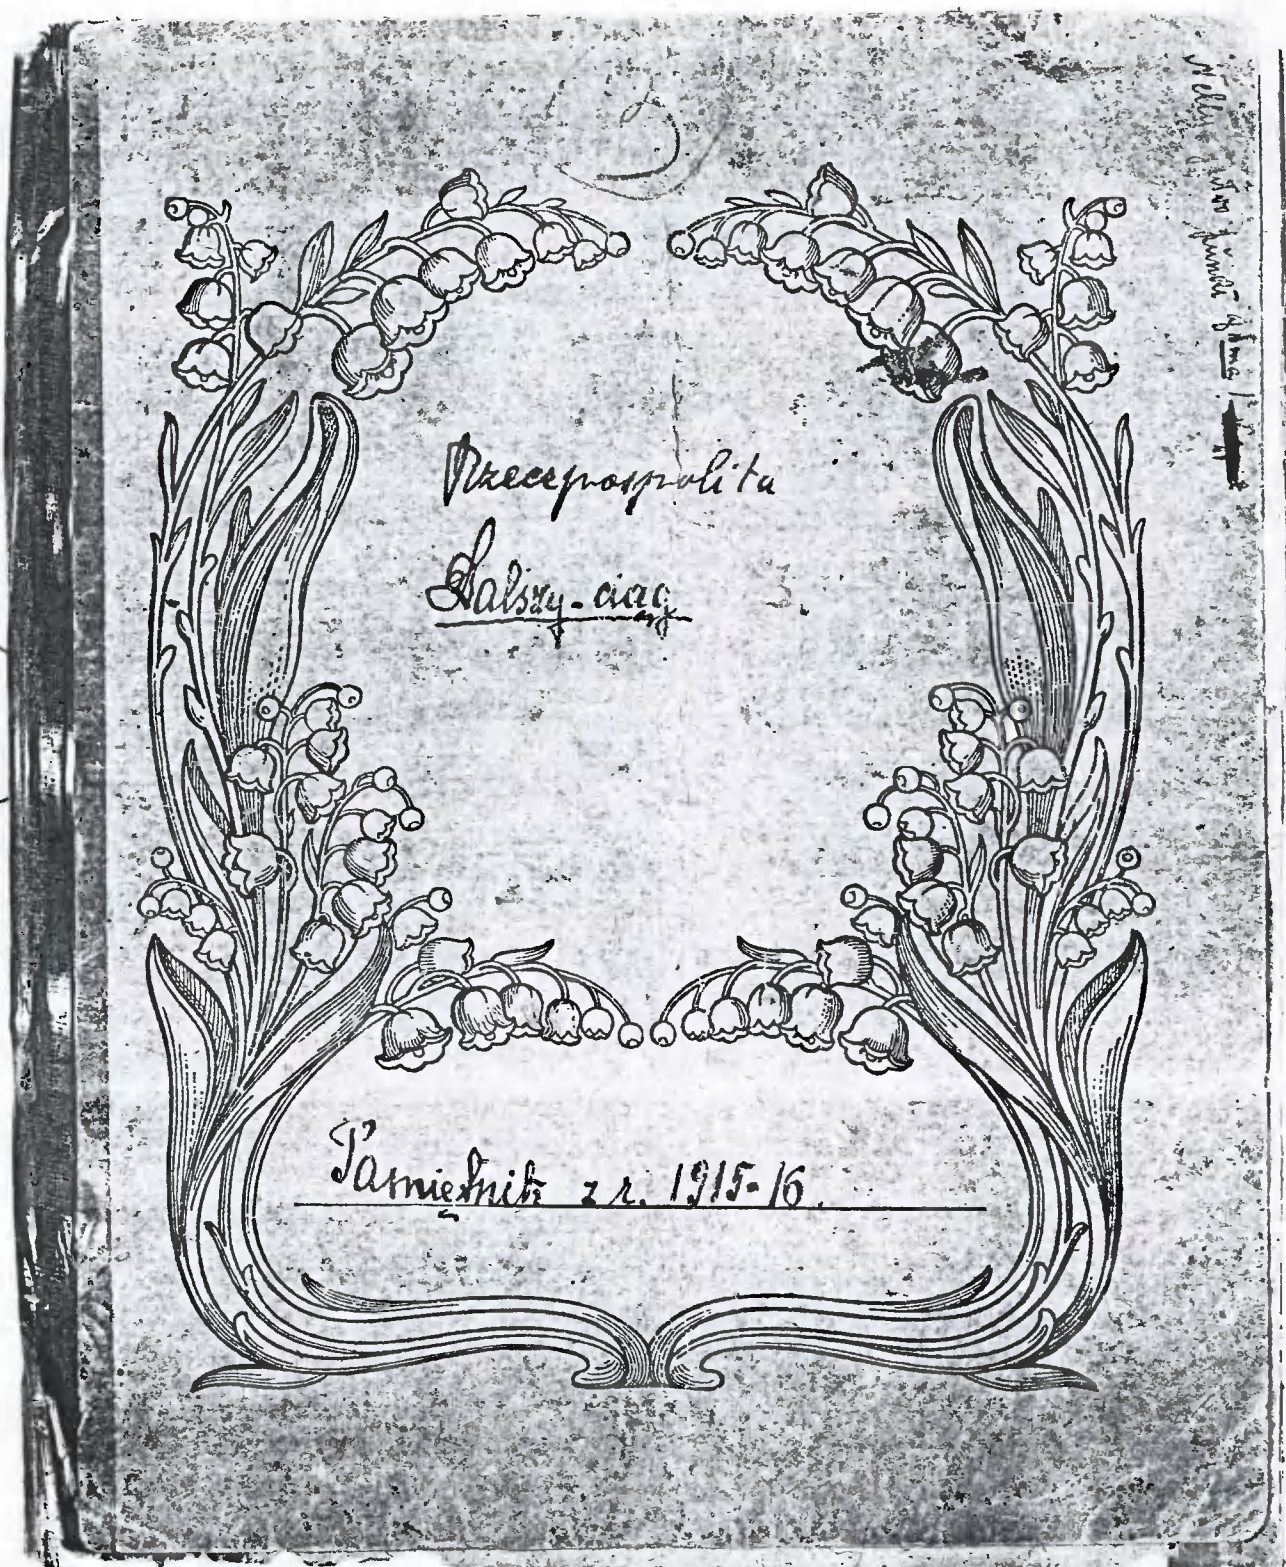 3
Rzeczpospolita
Dalszy-ciąg 3.
Pamiętnik z r. 1915-16.